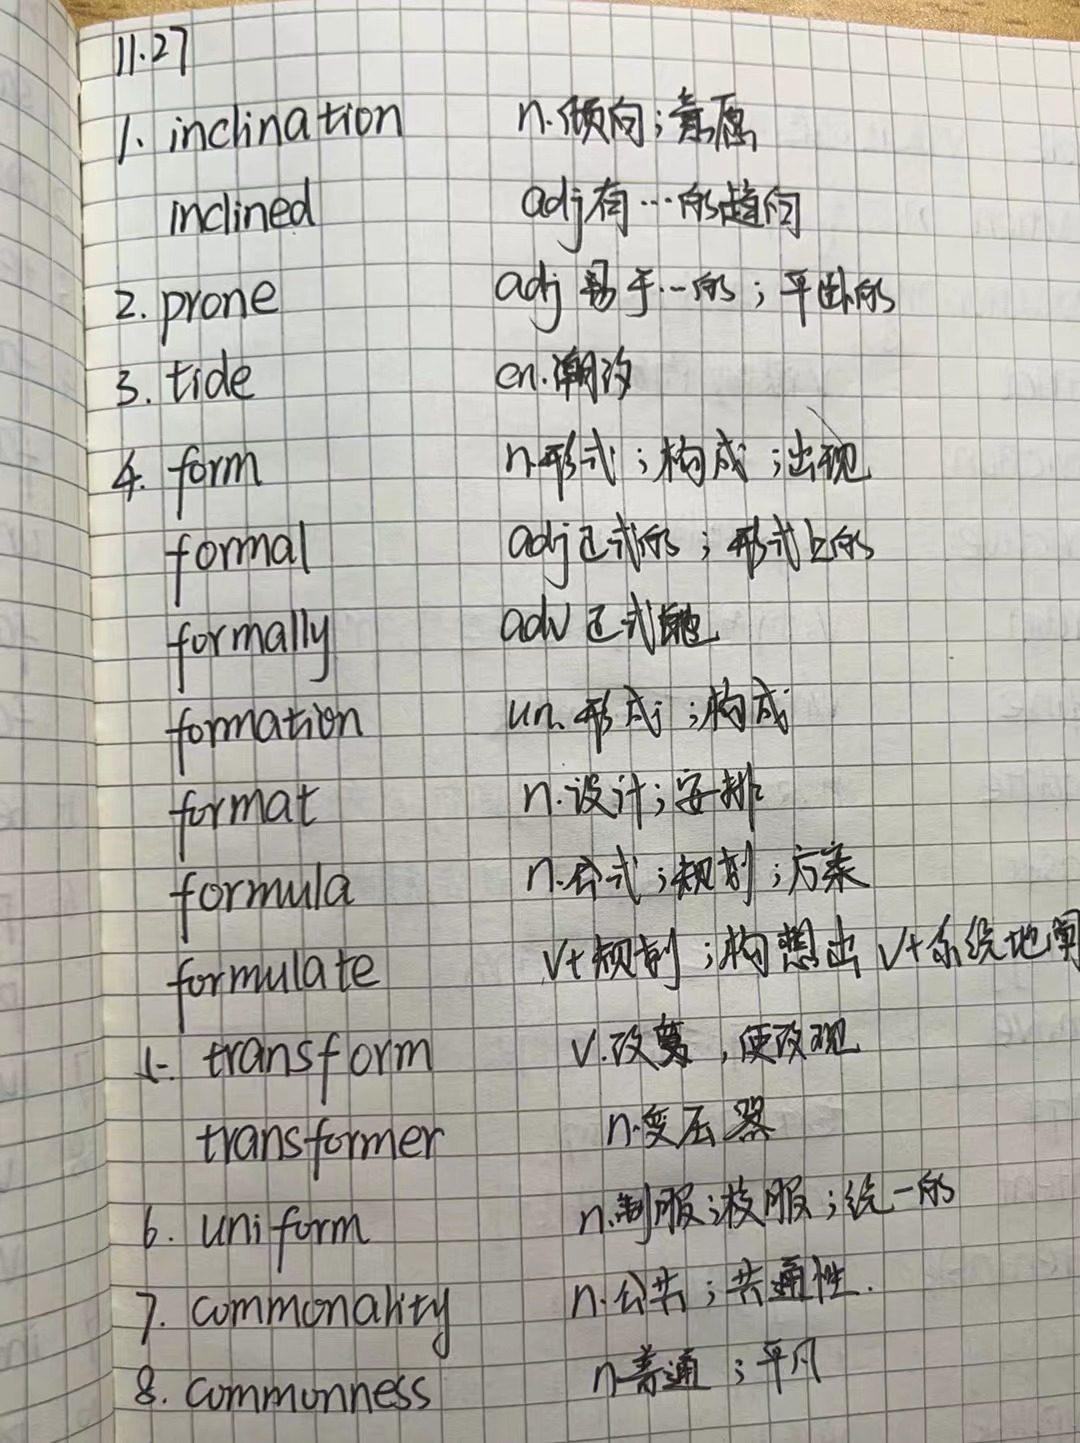 11.27
1. inclination n.倾向；意愿
inclined adj有…的趋向
2. prone adj 易于…的；平卧的
3. tide cn.潮汐
4. form n.形式；构成；出现
formal adj正式的；形式上的
formally adv 正式地
formation un.形成；构成
format n.设计；安排
formula n.公式；规划；方案
formulate vt规划；构想出 vt系统地阐
5. transform v.改变，使改观
transformer n.变压器
6. uniform n.制服；校服；统一的
7. commonality n.公共；共通性.
8. commonness n普通；平凡